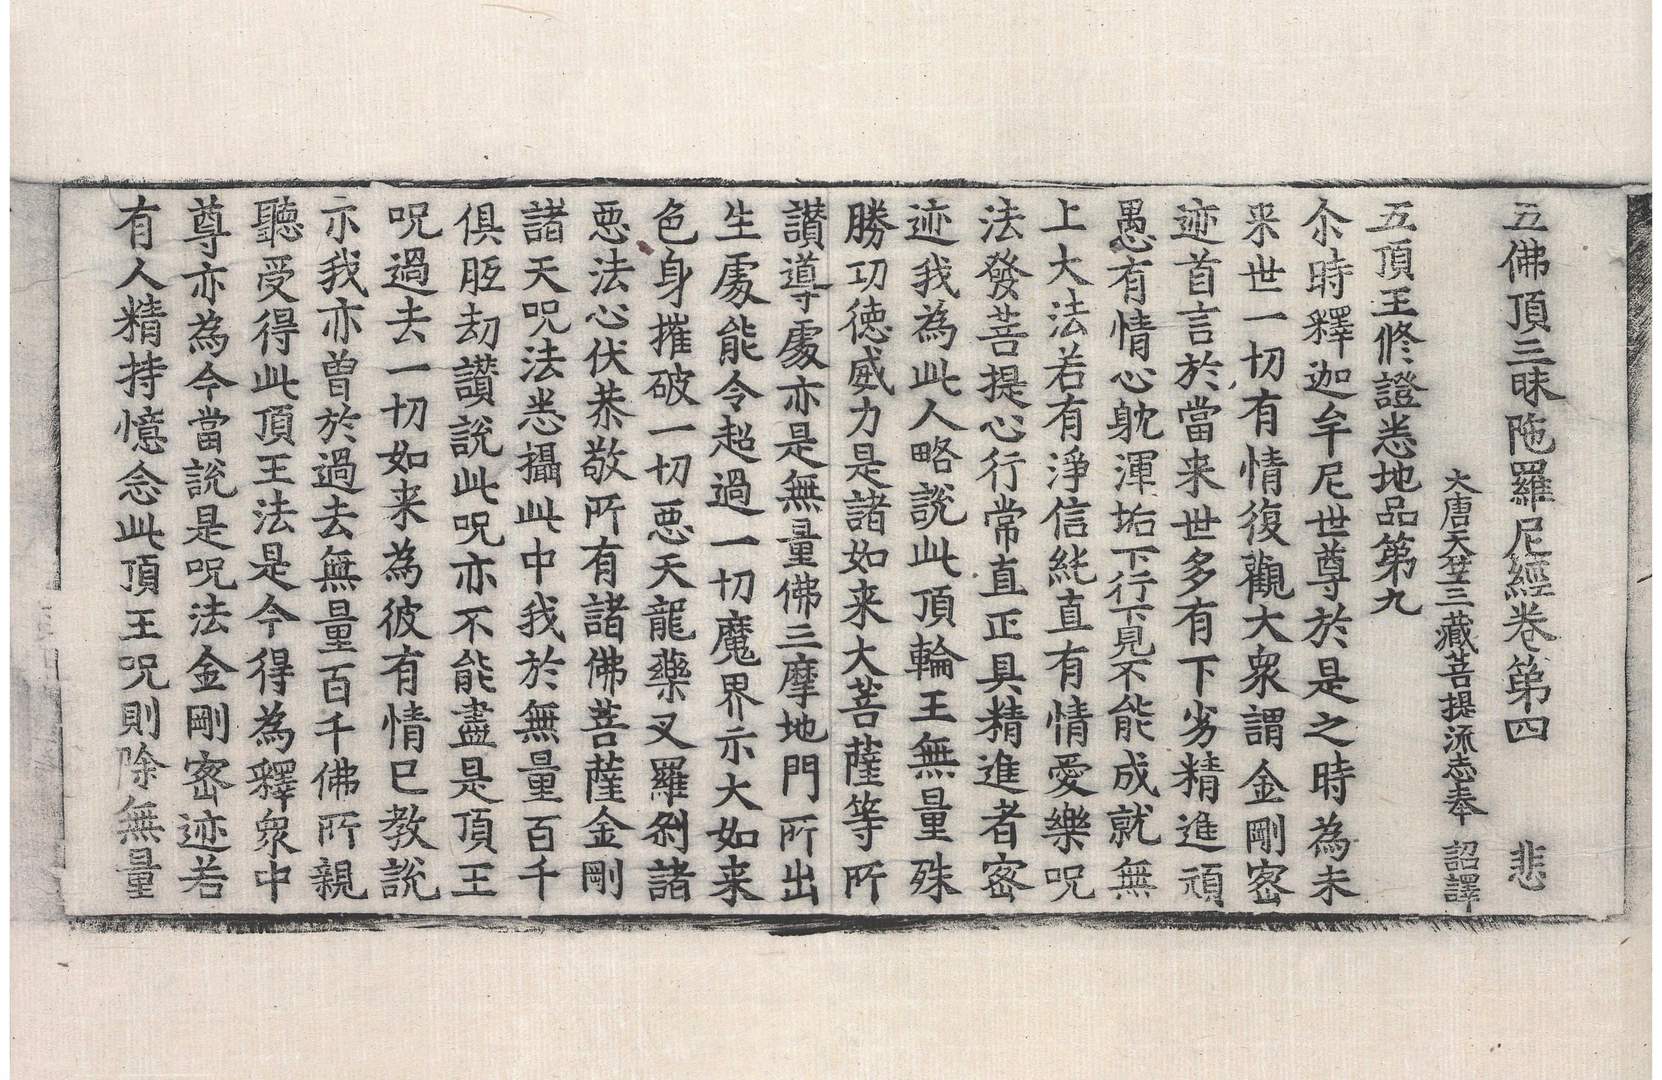 五佛頂三昧陁羅尼經卷第四　悲
大唐天竺三藏菩提流志奉　詔譯
五頂王修證悉地品第九
尒時釋迦牟尼世尊於是之時為未
来世一切有情復觀大衆謂金剛密
迹首言於當来世多有下劣精進頑
愚有情心躭渾垢下行下見不能成就無
上大法若有淨信純直有情愛樂呪
法發菩提心行常直正具精進者密
迹我為此人略說此頂輪王無量殊
勝功德威力是諸如来大菩薩等所
讃導處亦是無量佛三摩地門所出
生處能令超過一切魔界示大如来
色身摧破一切惡天龍藥叉羅剎諸
惡法心伏恭敬所有諸佛菩薩金剛
諸天呪法悉攝此中我於無量百千
俱胝劫讃說此呪亦不能盡是頂王
呪過去一切如来為彼有情已教說
示我亦曾於過去無量百千佛所親
聽受得此頂王法是今得為釋衆中
尊亦為今當說是呪法金剛密迹若
有人精持憶念此頂王呪則除無量